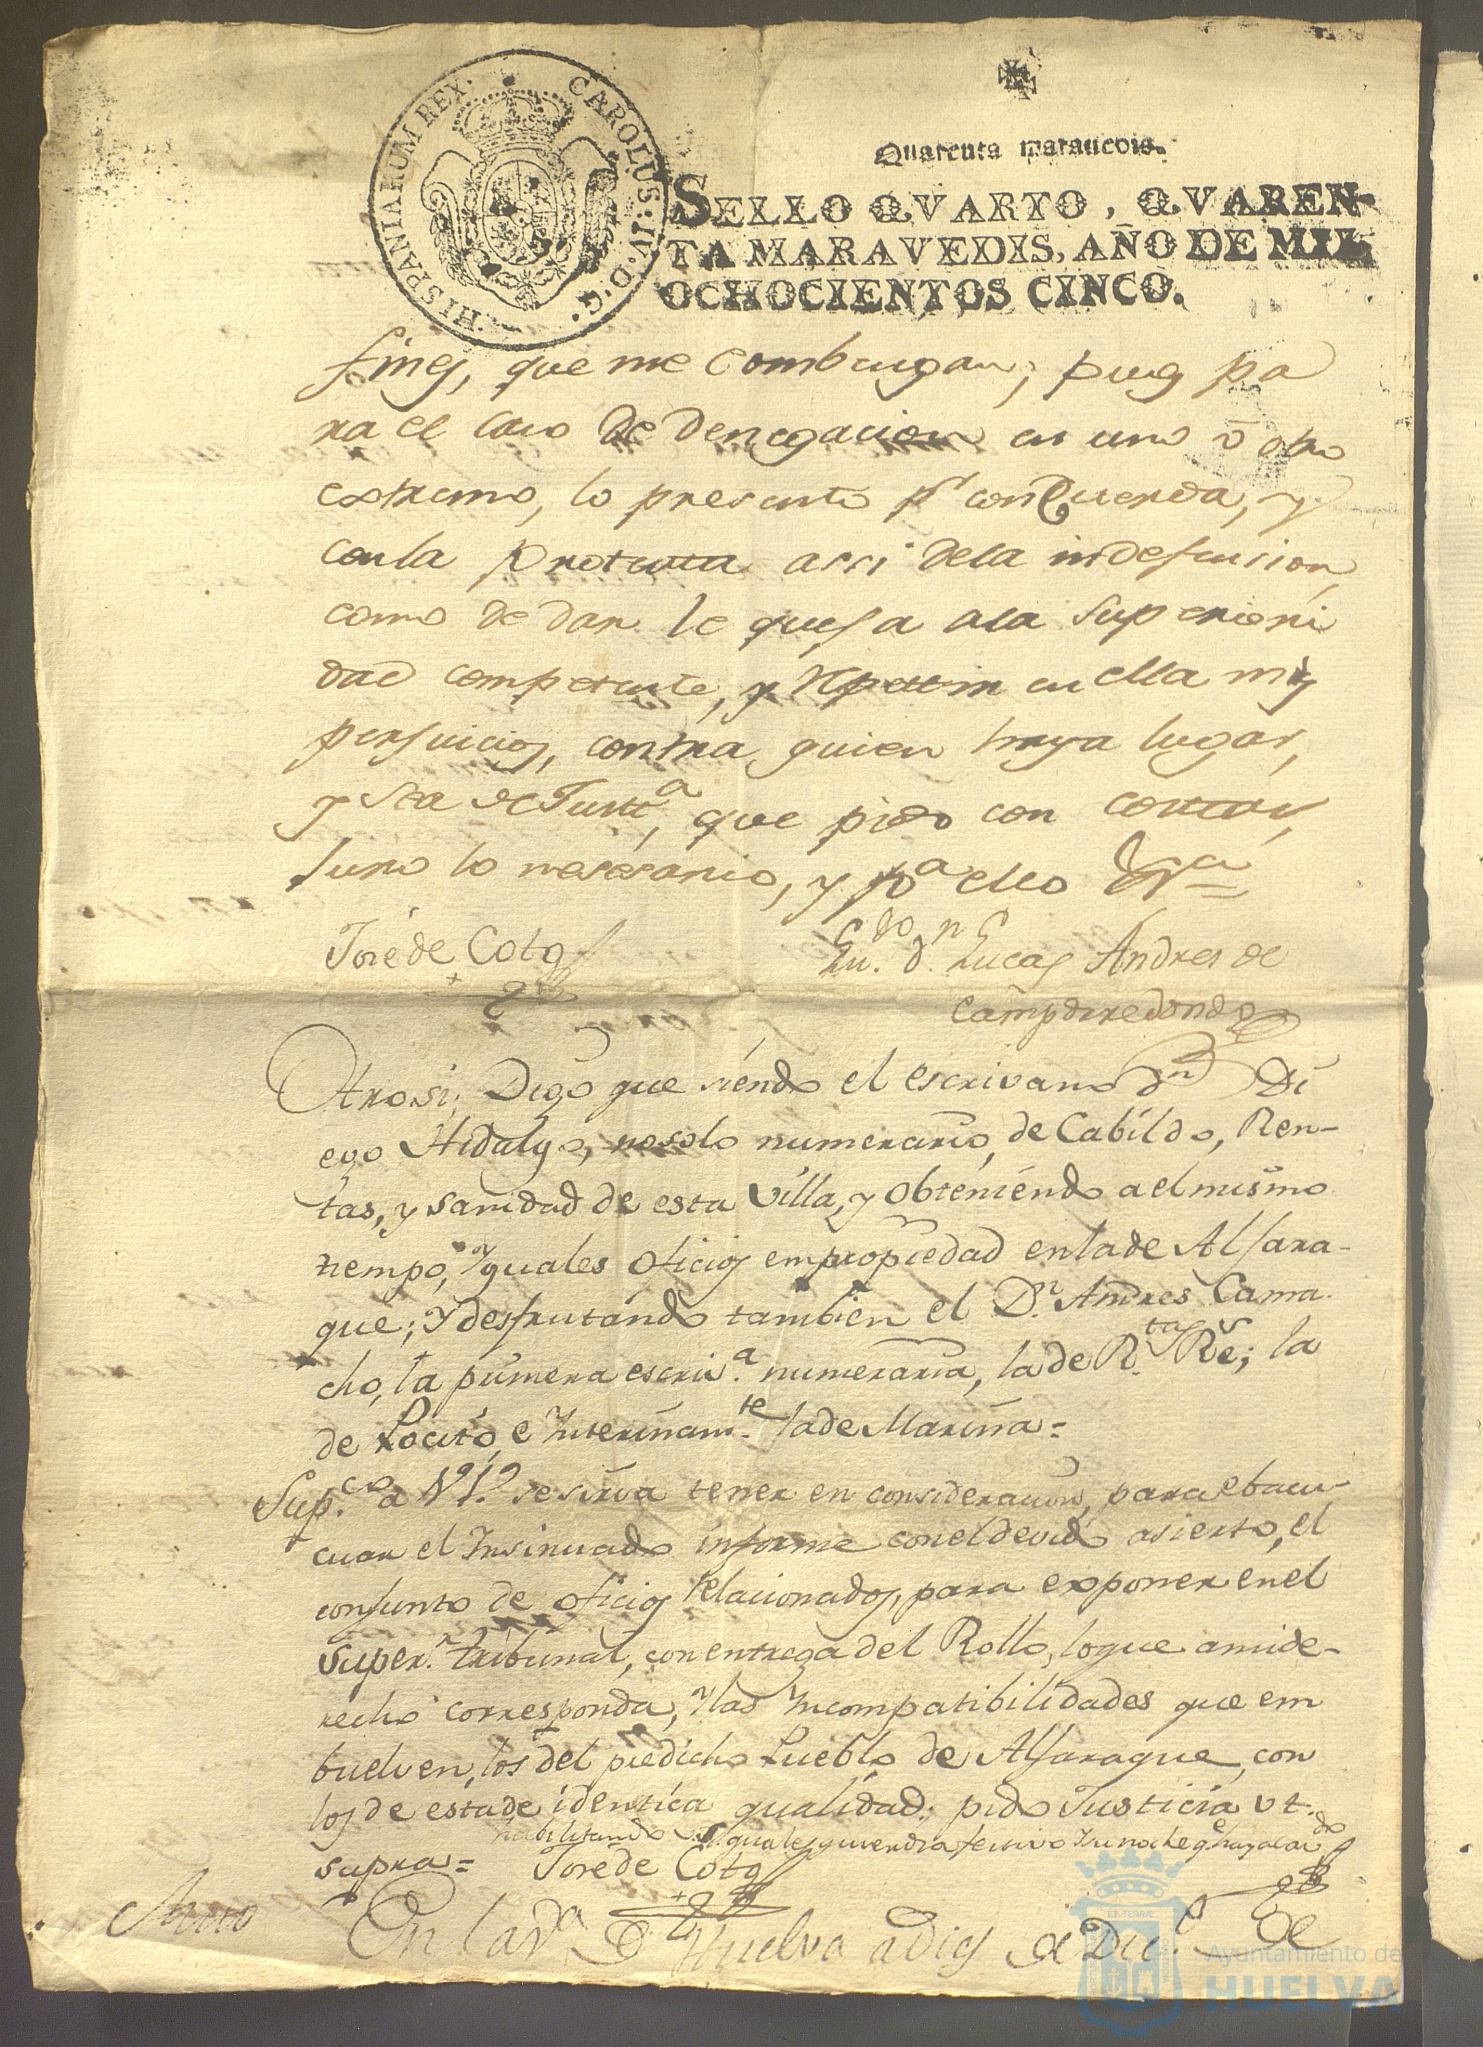 HISPANIARUM REX. CAROLUS. IV. D. G.
Quarenta marauedis.
SELLO QVARTO, QVAREN-
TA MARAVEDIS, AÑO DE MIL
OCHOCIENTOS CINCO.
fines, que me combengan; pues pa
ra el caso de denegacion en uno ò otro
extremo, lo presento pr conquerda, y
con la protexta assi dela indefension,
como de dar le quexa ala superiori
dad competente, y repetir en ella mis
perjuicios, contra quien haya lugar,
y sea de Justa, que pido con costas,
Juro lo nesesario, y pa ello Va=
Jose de Coto
Lizdo. Dn. Lucas Andres de
Campo redondo
Otrosi; Digo que siendo el escrivano Dn Di
ego Hidalgo, no solo numerario, de Cabildo, Ren-
tas, y sanidad de esta villa, y obteniendo a el mismo
tiempo, Yguales oficios em propiedad enla de Aljara-
que; Y desfrutando tambien el Dn. Andres Cama-
cho, la primera escriva. numeraria, la de Rtas. Rs; la
de Pocito, e Interinamte. la de Marina=
Supco. a V. S. se sirva tener en consideracion, para ebacu-
cuar el Insinuado informe con el devido asierto, el
conjunto de oficios relacionados, para exponer en el
Superr. tribunal, con entrega del Rollo, lo que a mi de-
recho corresponda, Y las Yncompatibilidades que em
buelven, los del predicho Pueblo de Aljaraque, con
los de esta de identica qualidad; pido Justicia vt.
habilitando
supra= Jose de Coto
Auto
En la Va. de Huelva a dies de Dice. de
Ayuntamiento de
HUELVA